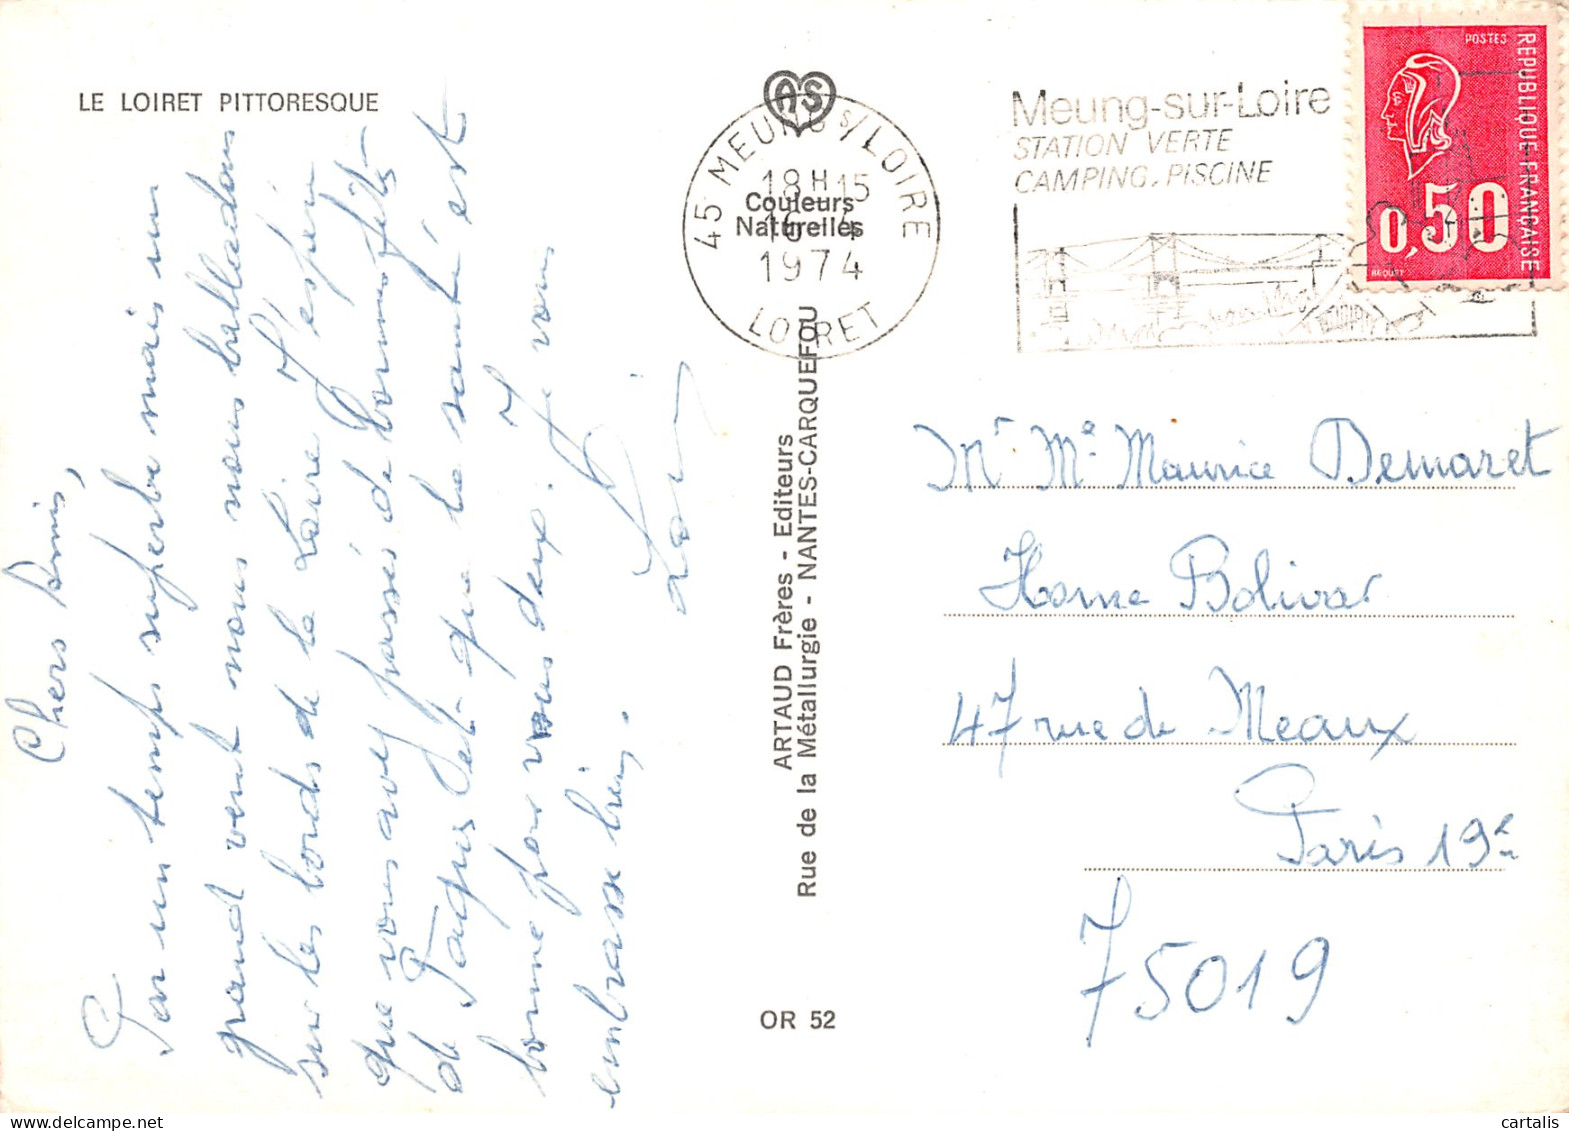 LE LOIRET PITTORESQUE
Chers Amis,
Par un temps superbe mais un
grand vent nous nous balladons
sur les bords de la Loire J'espère
que vous avez passés de bonnes fêtes
de Pâques et que la santé est
bonne pour vous deux. Je vous
embrasse bien.
AS
Couleurs
Naturelles
45 MEUNG S/LOIRE
18H15
16 4
1974
LOIRET
ARTAUD Frères - Editeurs
Rue de la Métallurgie - NANTES-CARQUEFOU
OR 52
Meung-sur-Loire
STATION VERTE
CAMPING. PISCINE
POSTES
REPUBLIQUE FRANÇAISE
0,50
BEQUET
Mr Me Maurice Demaret
Home Bolivar
47 rue de Meaux
Paris 19e
75019
cartalis